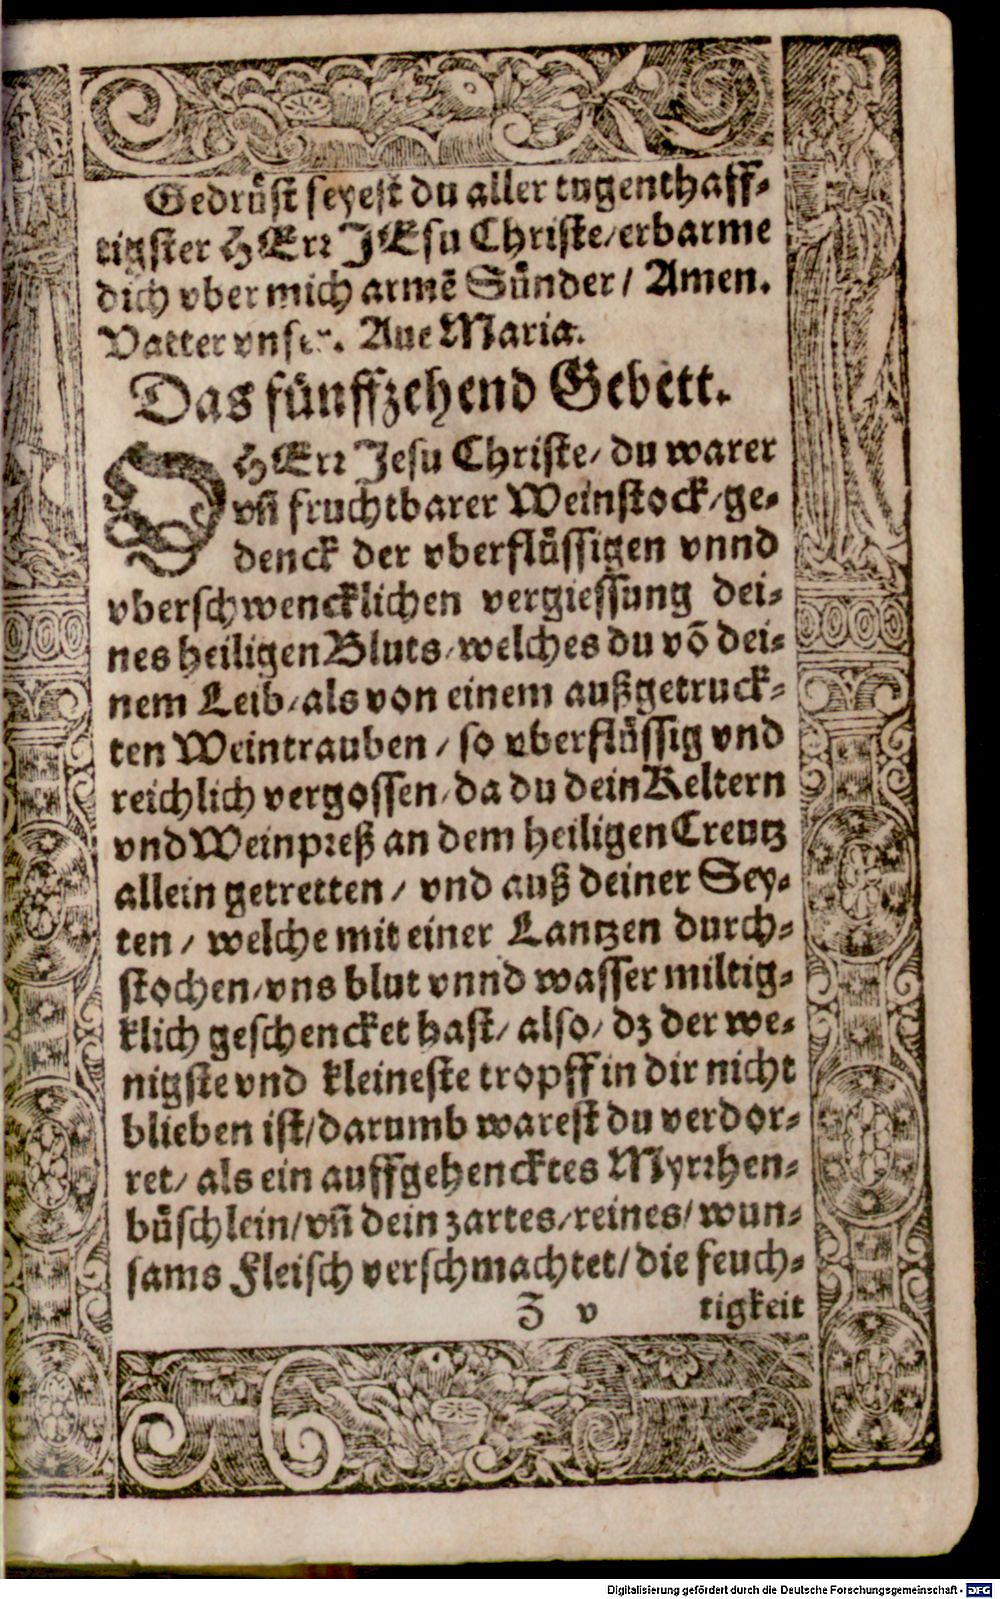 Gedruͤst seyest du aller tugenthaff-
tigster HErr JEsu Christe/erbarme
dich vber mich armē Suͤnder/ Amen.
Vatter vnser. Aue Maria.
Das fuͤnffzehend Gebett.
O HErr Jesu Christe/ du warer
vñ fruchtbarer Weinstock/ge-
denck der vberfluͤssigen vnnd
vberschwencklichen vergiessung dei-
nes heiligen Bluts/welches du võ dei-
nem Leib/als von einem außgetruck-
ten Weintrauben/ so vberfluͤssig vnd
reichlich vergossen/da du dein Keltern
vnd Weinpreß an dem heiligen Creutz
allein getretten/ vnd auß deiner Sey-
ten/ welche mit einer Lantzen durch-
stochen/vns blut vnnd wasser miltig-
klich geschencket hast/ also/ dz der we-
nigste vnd kleineste tropff in dir nicht
blieben ist/darumb warest du verdor-
ret/ als ein auffgehencktes Myrrhen-
buͤschlein/vñ dein zartes/reines/wun-
sams Fleisch verschmachtet/die feuch-
Z v tigkeit
Digitalisierung gefördert durch die Deutsche Forschungsgemeinschaft - DFG